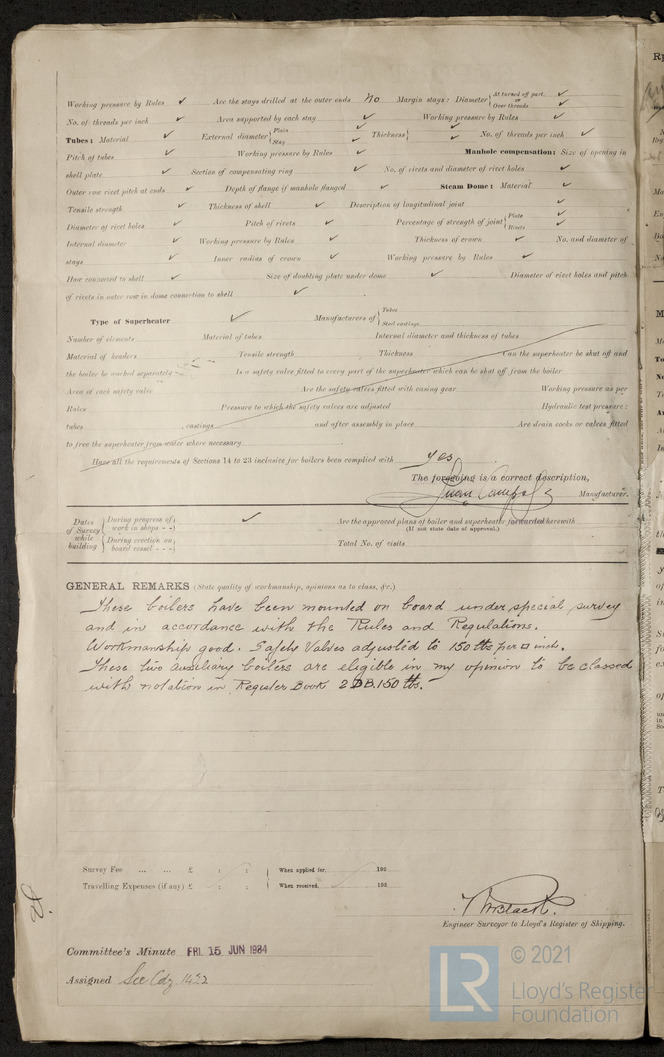 Working pressure by Rules ✓ Are the stays drilled at the outer ends No Margin stays: Diameter { At turned off part, ✓ or Over threads ✓
No. of threads per inch ✓ Area supported by each stay ✓ Working pressure by Rules ✓
Tubes: Material ✓ External diameter { Plain ✓ Stay ✓ Thickness { ✓ ✓ No. of threads per inch ✓
Pitch of tubes ✓ Working pressure by Rules ✓ Manhole compensation: Size of opening in
shell plate ✓ Section of compensating ring ✓ No. of rivets and diameter of rivet holes ✓
Outer row rivet pitch at ends ✓ Depth of flange if manhole flanged ✓ Steam Dome: Material ✓
Tensile strength ✓ Thickness of shell ✓ Description of longitudinal joint ✓
Diameter of rivet holes ✓ Pitch of rivets ✓ Percentage of strength of joint { Plate ✓ Rivets ✓
Internal diameter ✓ Working pressure by Rules ✓ Thickness of crown ✓ No. and diameter of
stays ✓ Inner radius of crown ✓ Working pressure by Rules ✓
How connected to shell ✓ Size of doubling plate under dome ✓ Diameter of rivet holes and pitch
of rivets in outer row in dome connection to shell ✓
Type of Superheater ✓ Manufacturers of { Tubes Steel castings
Number of elements Material of tubes Internal diameter and thickness of tubes
Material of headers Tensile strength Thickness Can the superheater be shut off and
the boiler be worked separately Is a safety valve fitted to every part of the superheater which can be shut off from the boiler
Area of each safety valve Are the safety valves fitted with easing gear Working pressure as per
Rules Pressure to which the safety valves are adjusted Hydraulic test pressure:
tubes castings and after assembly in place Are drain cocks or valves fitted
to free the superheater from water where necessary
Have all the requirements of Sections 14 to 23 inclusive for boilers been complied with yes
The foregoing is a correct description,
Manufacturer.
Dates of Survey while building { During progress of work in shops - - ✓ Are the approved plans of boiler and superheater forwarded herewith
(If not state date of approval.)
During erection on board vessel - - - Total No. of visits
GENERAL REMARKS (State quality of workmanship, opinions as to class, &c.)
These boilers have been mounted on board under special survey
and in accordance with the Rules and Regulations.
Workmanship good. Safety Valves adjusted to 150 lbs per □ inch.
These two auxiliary boilers are eligible in my opinion to be classed
with notation in Register Book 2 DB.150 lbs.
Survey Fee ... ... £ : : When applied for, 193
Travelling Expenses (if any) £ : : When received, 193
Engineer Surveyor to Lloyd's Register of Shipping.
Committee's Minute FRI. 15 JUN 1934
Assigned See Cdg.
© 2021
LR Lloyd's Register
Foundation